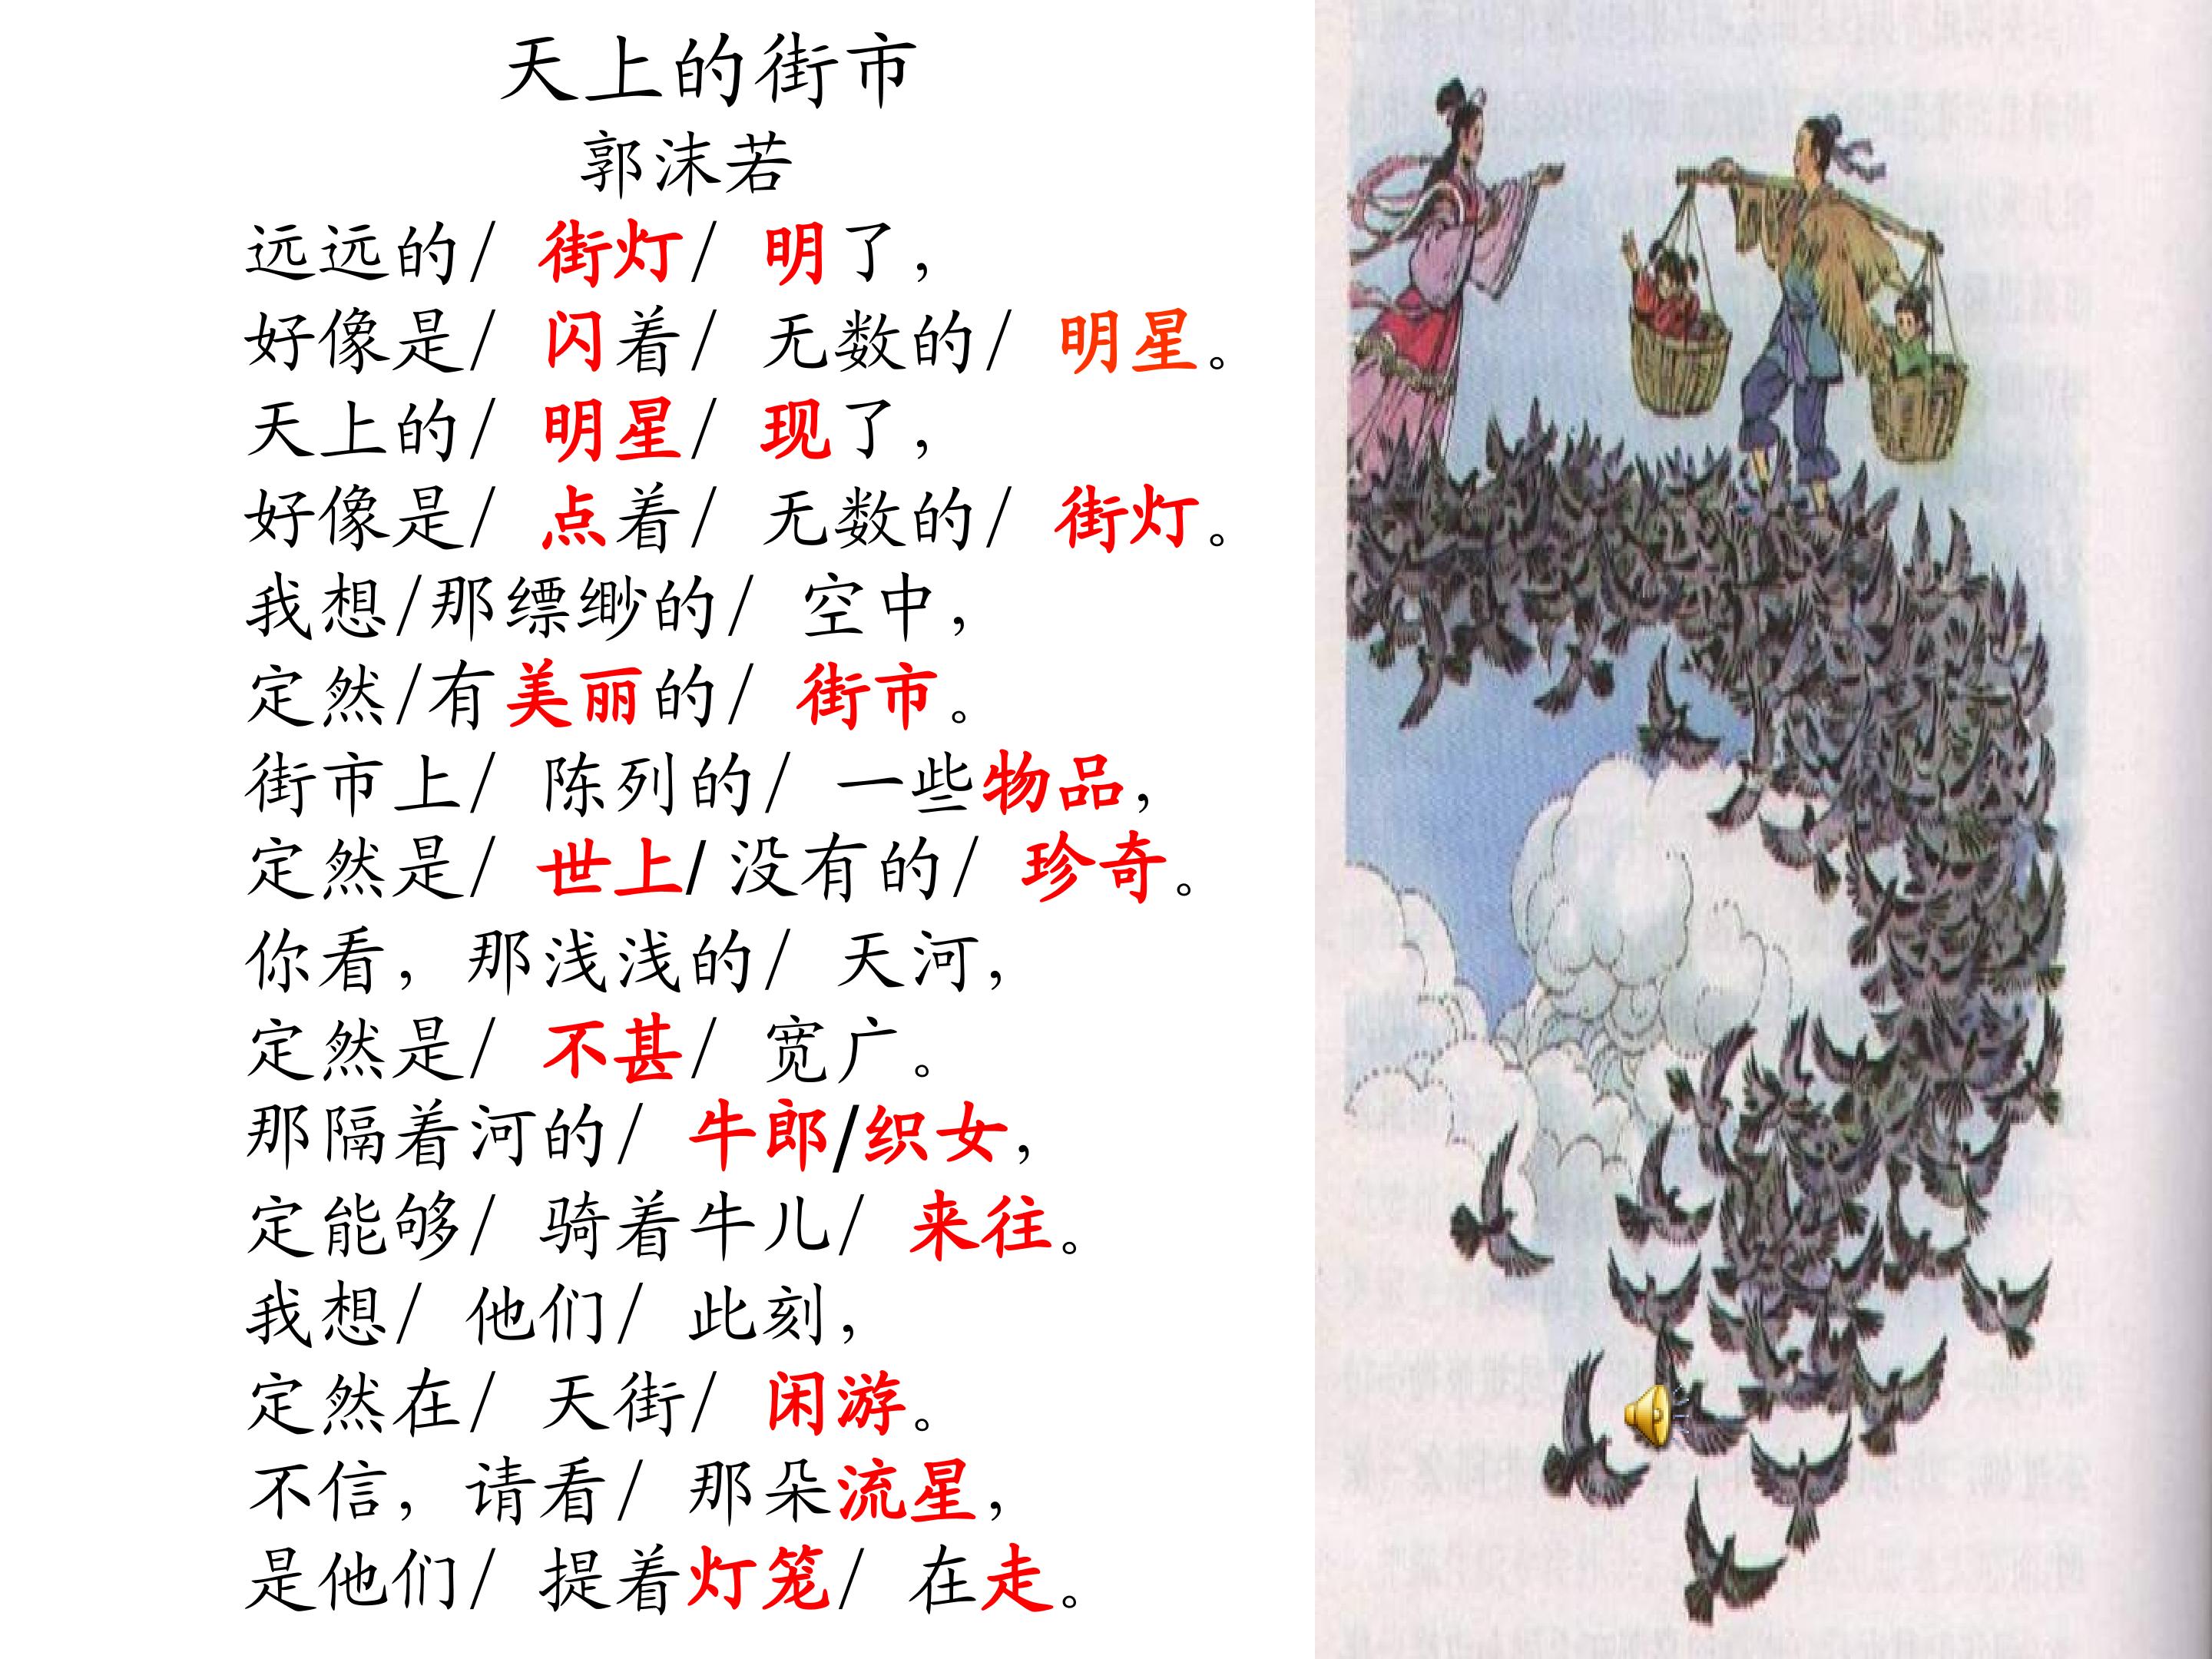 天上的街市
郭沫若
远远的/ 街灯/ 明了，
好像是/ 闪着/ 无数的/ 明星。
天上的/ 明星/ 现了，
好像是/ 点着/ 无数的/ 街灯。
我想/那缥缈的/ 空中，
定然/有美丽的/ 街市。
街市上/ 陈列的/ 一些物品，
定然是/ 世上/ 没有的/ 珍奇。
你看，那浅浅的/ 天河，
定然是/ 不甚/ 宽广。
那隔着河的/ 牛郎/织女，
定能够/ 骑着牛儿/ 来往。
我想/ 他们/ 此刻，
定然在/ 天街/ 闲游。
不信，请看/ 那朵流星，
是他们/ 提着灯笼/ 在走。